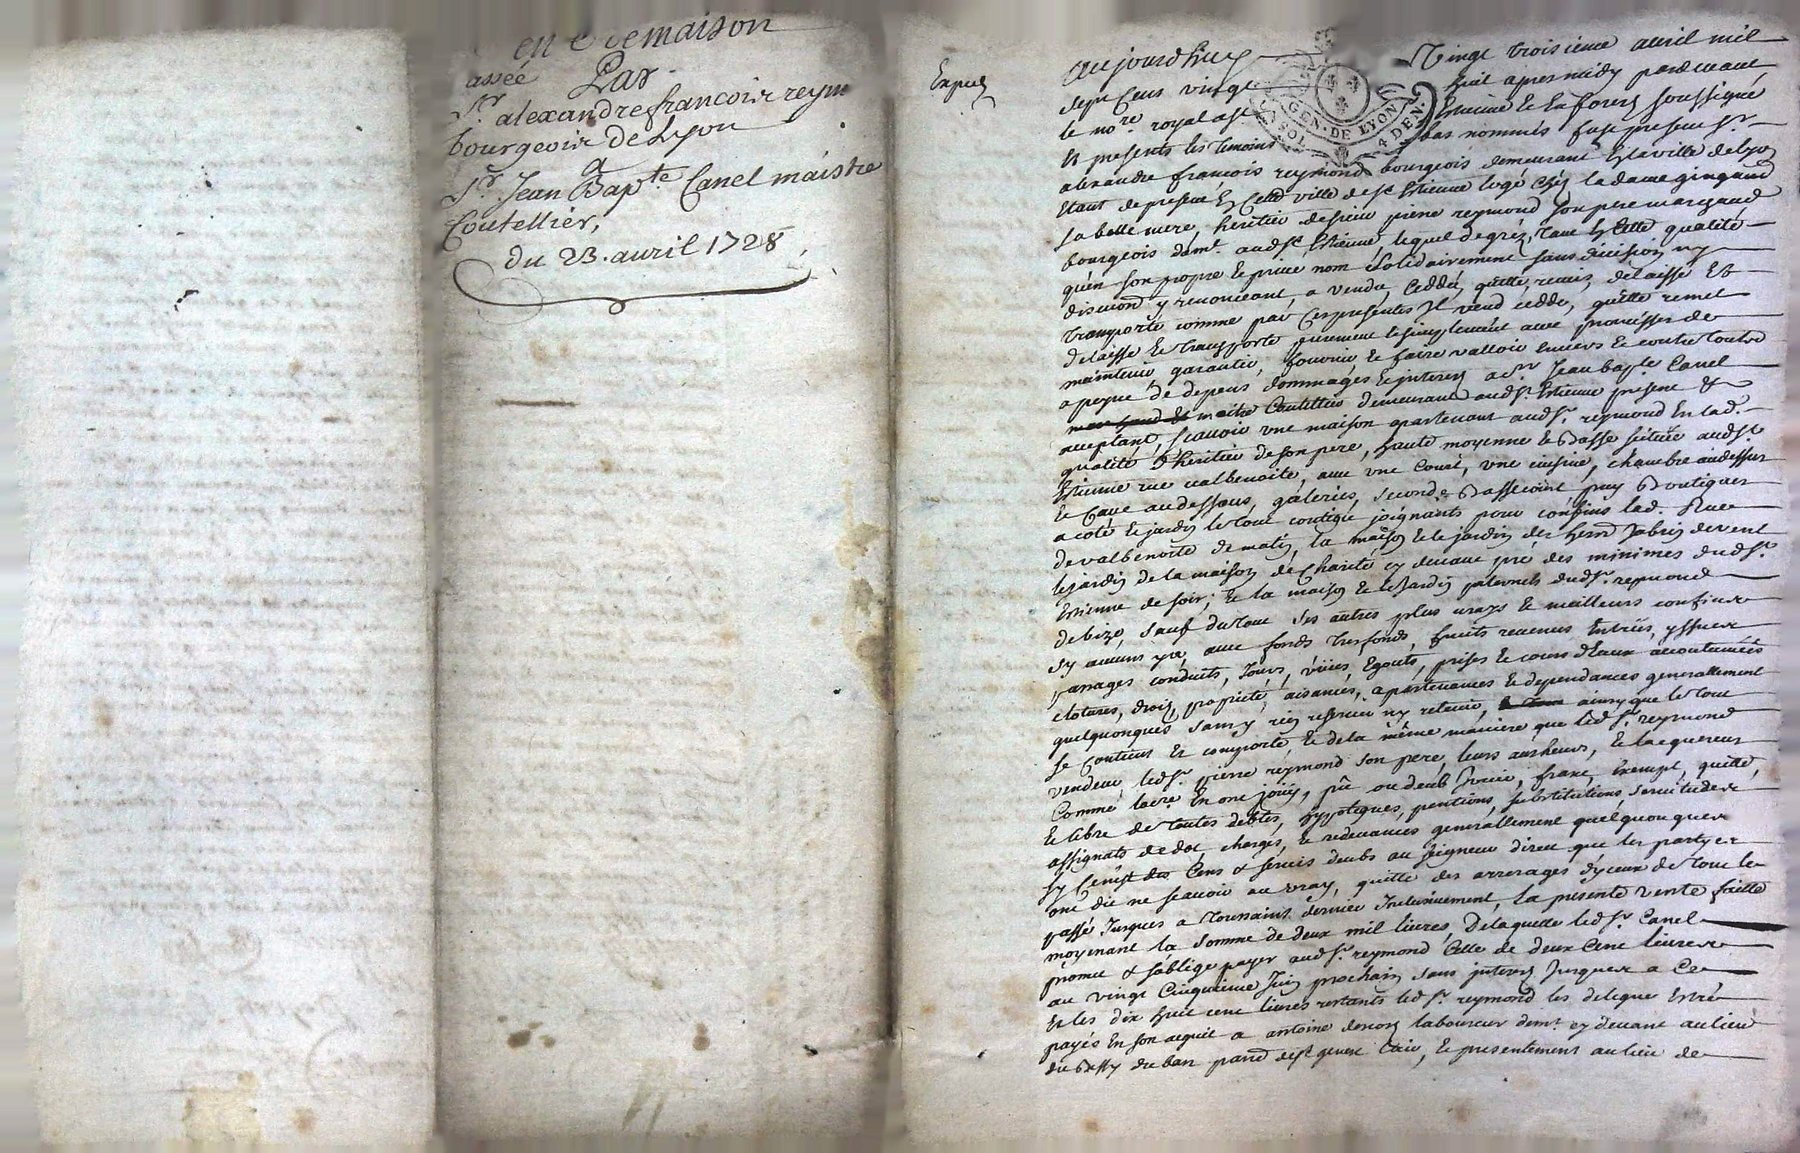 en de maison
assée Par
Sr. alexandre francois reym
bourgeois de Lyon
a
Sr. Jean Bapte. Canel maistre
Coutellier,
du 23. avril 1728
Expue
aujourdhuy Vingt troisieme avril mil
sept Cens vingt huit apres midy pardevant
le nore. royal a St Estienne En forez soussigné
Et presents les temoins bas nommés fust present Sr.
alexandre francois reymond bourgeois demeurant En la ville de Lyon
Etant de present En Cette ville de St Estienne logé Chez la dame gingaud
sa belle mere, heritier de feu pierre reymond son pere marchand
bourgeois demt. audSt. Estienne, lequel de gré, tant En Cette qualité
qu'en son propre et privé nom solidairement sans division ny
discution y renonceant, a vendu, Ceddé, quitté, remis, delaissé Et
transporté comme par Ces presentes Il vend cedde, quitte remet
delaisse Et transporte purement et simplement avec promesses de
maintenir garantir, fournir et faire valloir Envers Et contre toutes
a peyne de depens dommages et interests a Sr. Jean bapte. Canel
maitre Coutellier demeurant audSt. Estienne present &
acceptant, scavoir une maison apartenant audSr. reymond En lad.
qualité d'heritier de son pere, haute moyenne et basse scituée audSt.
Estienne rue valbenoite, avec une Court, une cuisine, chambre audessus
et Cave audessous, galeries, seconde basse court, puy boutiques
a coté et jardin le tout contigu joignants pour confins lad. Rue
de valbenoite de matin, la maison et le jardin des devent
le jardin de la maison de Charité cy devant pré des minimes dudSt.
Estienne de soir, et la maison et Jardin paternels dudSr. reymond
de bize, sauf du tout ses autres plus vrays et meilleurs confins
sy aucuns y a, avec fonds tresfonds, fruits revenus Entrées, yssues
passages conduits, Jours, vües, Egouts, prises et cours d'Eaux accoutumées
clotures, droits, propriété, aisances, apartenances et dependances generallement
quelquonques sans y rien reserver ny retenir, ainsy que le tout
se Contient Et comporte, et de la même maniere que ledSr. reymond
vendeur, ledSr. pierre reymond son pere, leurs autheurs, et lacquereur
Comme En ont joüy, pû ou deub jouir, franc, Exempt, quitte,
Et libre de toutes debtes, hypoteques, pentions, substitutions servitudes
assignats de dot, charges, et redevances generallement quelquonques
sy Cenest des Cens & servis deubs au seigneur direct que les partyes
ont dit ne scavoir au vray, quitte des arrerages d'yceux de tout le
passé Jusques a toussaint dernier Inclusivement, la presente vente faitte
moyenant la somme de deux mil livres, De laquelle ledSr. Canel
promet & soblige payer audSr. reymond Celle de deux Cent livres
au vingt Cinquieme Juin prochain sans interest Jusques a Ce
Et les dix huit cent livres restants ledSr. reymond les delegue Estre
payés En son acquit a antoine laboureur demt. cy devant au lieu
du ban parr. de St genest , et presentement au lieu de